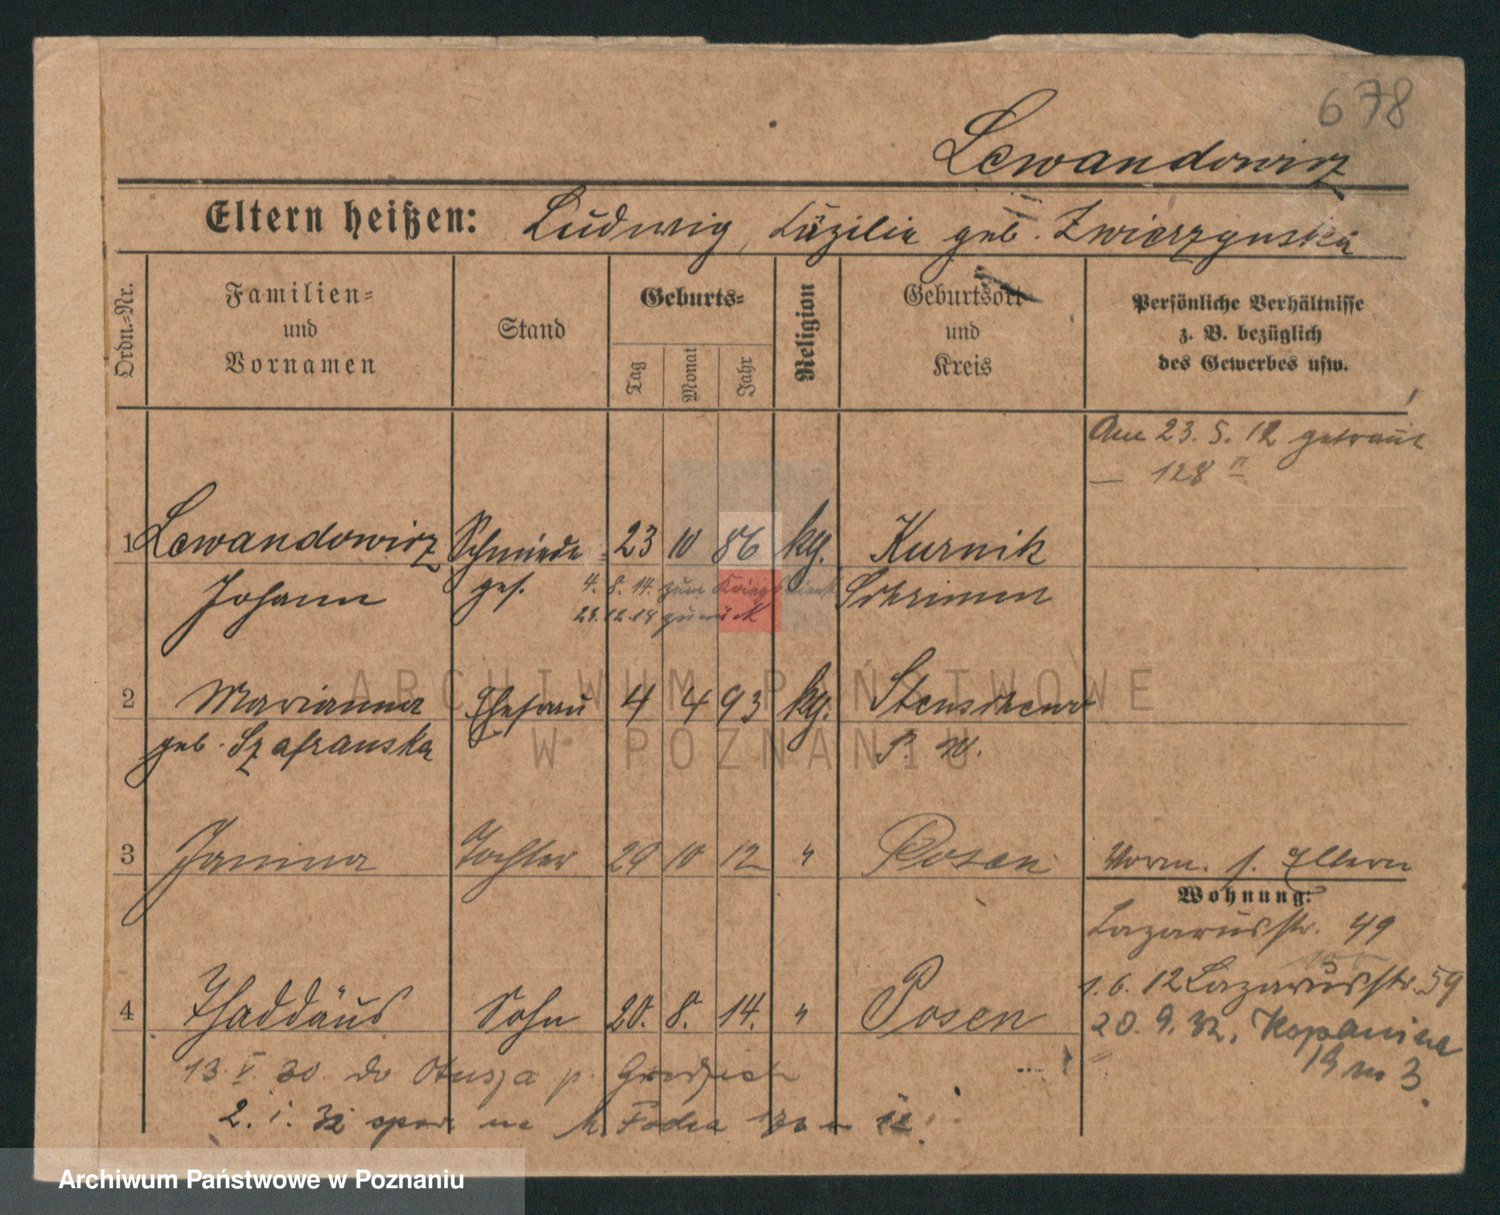 678
Lewandowicz
Eltern heißen: Ludwig, Cäzilie geb. Zwierzynska
Ordn.-Nr.
Familien-
und
Vornamen
Stand
Geburts-
Tag
Monat
Jahr
Religion
Geburtsort
und
Kreis
Persönliche Verhältnisse
z. B. bezüglich
des Gewerbes usw.
Am 23. 5. 12 getraut
— 128 II
1 Lewandowicz Schmiede 23 10 86 kg. Kurnik
Johann ges. 4. 8. 14. zum Kriegsdienst Schrimm
23.12.18 zurück
2 Marianna Ehefrau 4 4 93 kg. Stenschewo
geb. Szafranska P. W.
3 Janina Tochter 29 10 12 " Posen
Vorm. s. Eltern
Wohnung:
Lazarusstr. 49
4 Thaddäus Sohn 20. 8. 14. " Posen
1. 6. 12 Lazarusstr. 59
20. 9. 32. Kopanina
19 m 3.
13. V. 30. do Otusza p. Grodzisk
2. I. 32 na
ARCHIWUM PAŃSTWOWE
W POZNANIU
Archiwum Państwowe w Poznaniu